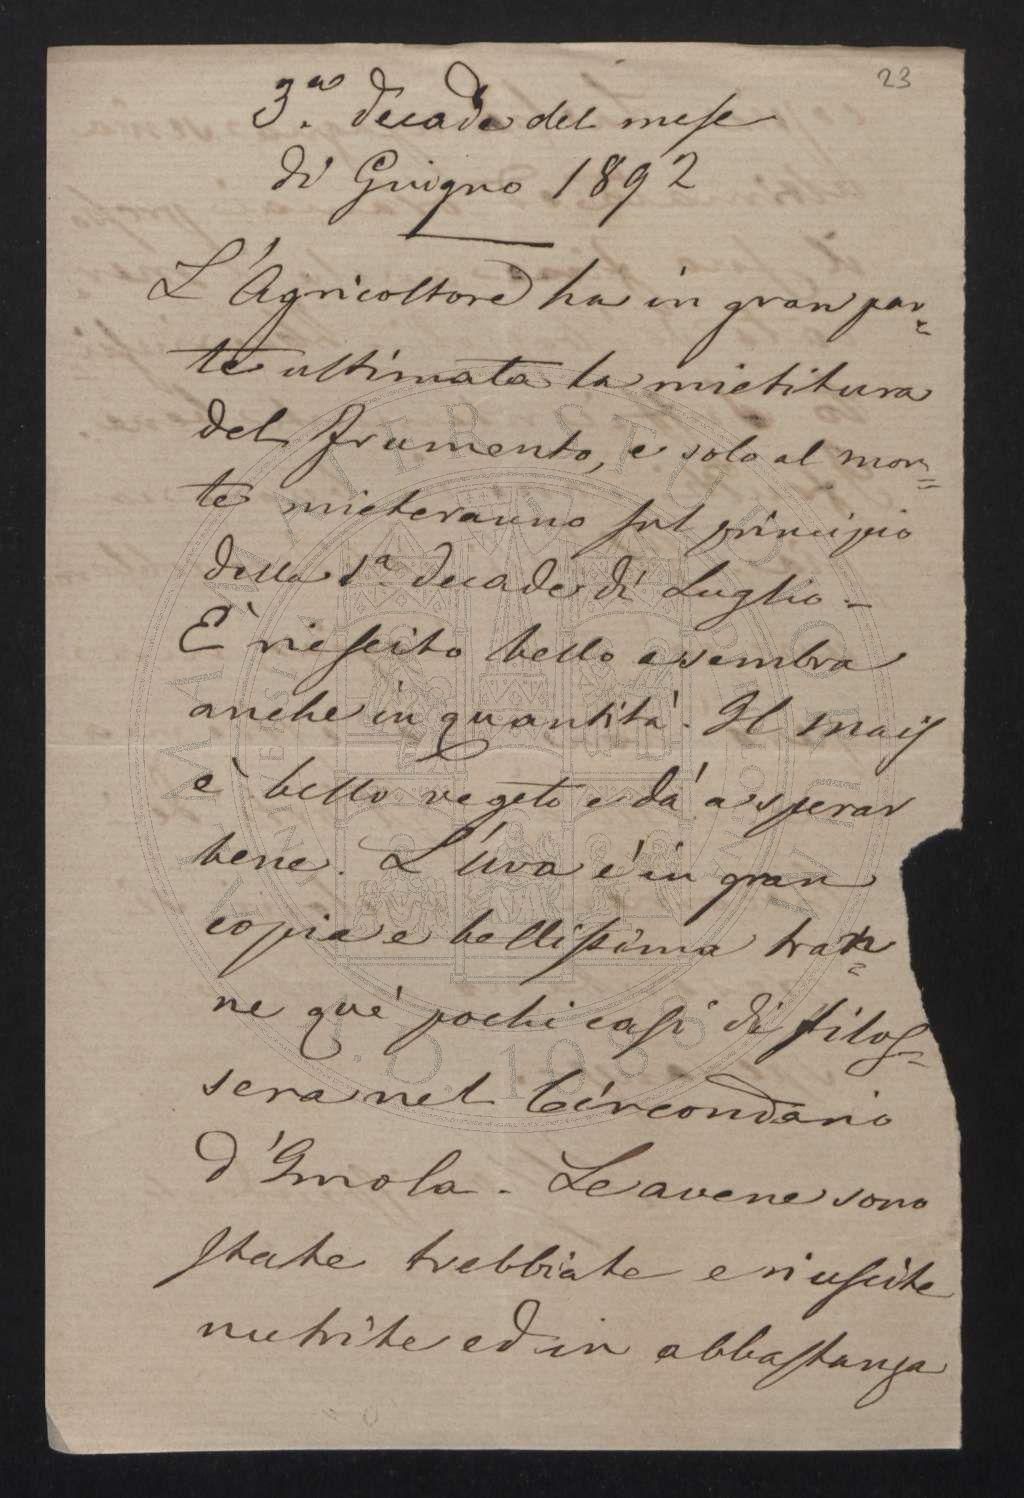 23
3.a decade del mese
di Giugno 1892
L'Agricoltore ha in gran par=
te ultimata la mietitura
del frumento, e solo al mon=
te mieteranno sul principio
della 1.a decade di Luglio -
È riescito bello e sembra
anche in quantità. Il mais
è bello vegeto e dà a sperar
bene. L'uva è in gran
copia e bellissima tran=
ne què pochi casi di filos=
sera nel Circondario
d'Imola - Le avene sono
state trebbiate e riuscite
nutrite ed in abbastanza
ALMA MATER STUDIORUM
A.D. 1088